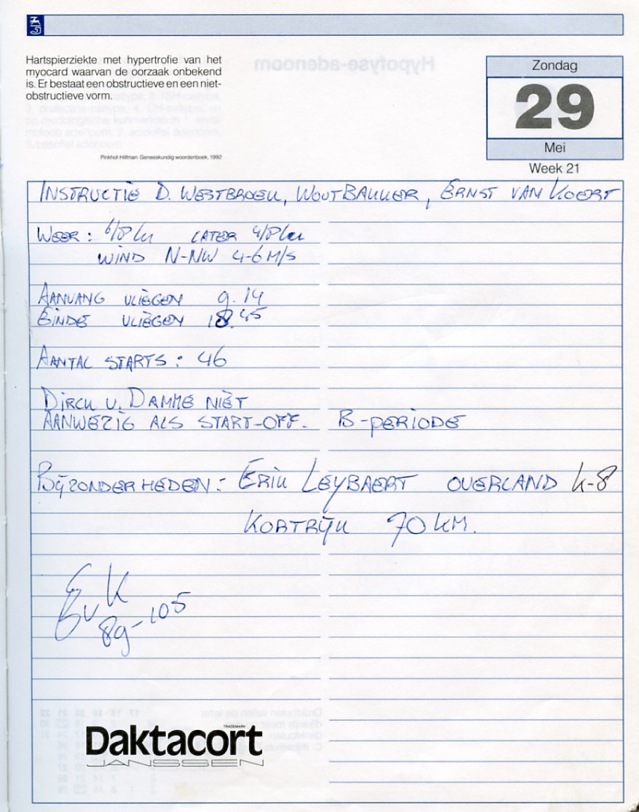 Hartspierziekte met hypertrofie van het
myocard waarvan de oorzaak onbekend
is. Er bestaat een obstructieve en een niet-
obstructieve vorm.
Pinkhof-Hilfman: Geneeskundig woordenboek, 1992
Hypofyse-adenoom
Zondag
29
Mei
Week 21
INSTRUCTIE D. WESTBROEK, WOUT BAKKER, ERNST VAN KOERT
WEER: 6/8 Cu LATER 4/8 Cu
WIND N-NW 4-6 M/S
AANVANG VLIEGEN 9.14
EINDE VLIEGEN 18.45
AANTAL STARTS: 46
DIRCK V. DAMME NIET
AANWEZIG ALS START-OFF. B-PERIODE
BIJZONDERHEDEN: ERIK LEYBAERT OVERLAND K-8
KORTRIJK 70 KM.
EvK
89-105
TRADEMARK
Daktacort
JANSSEN